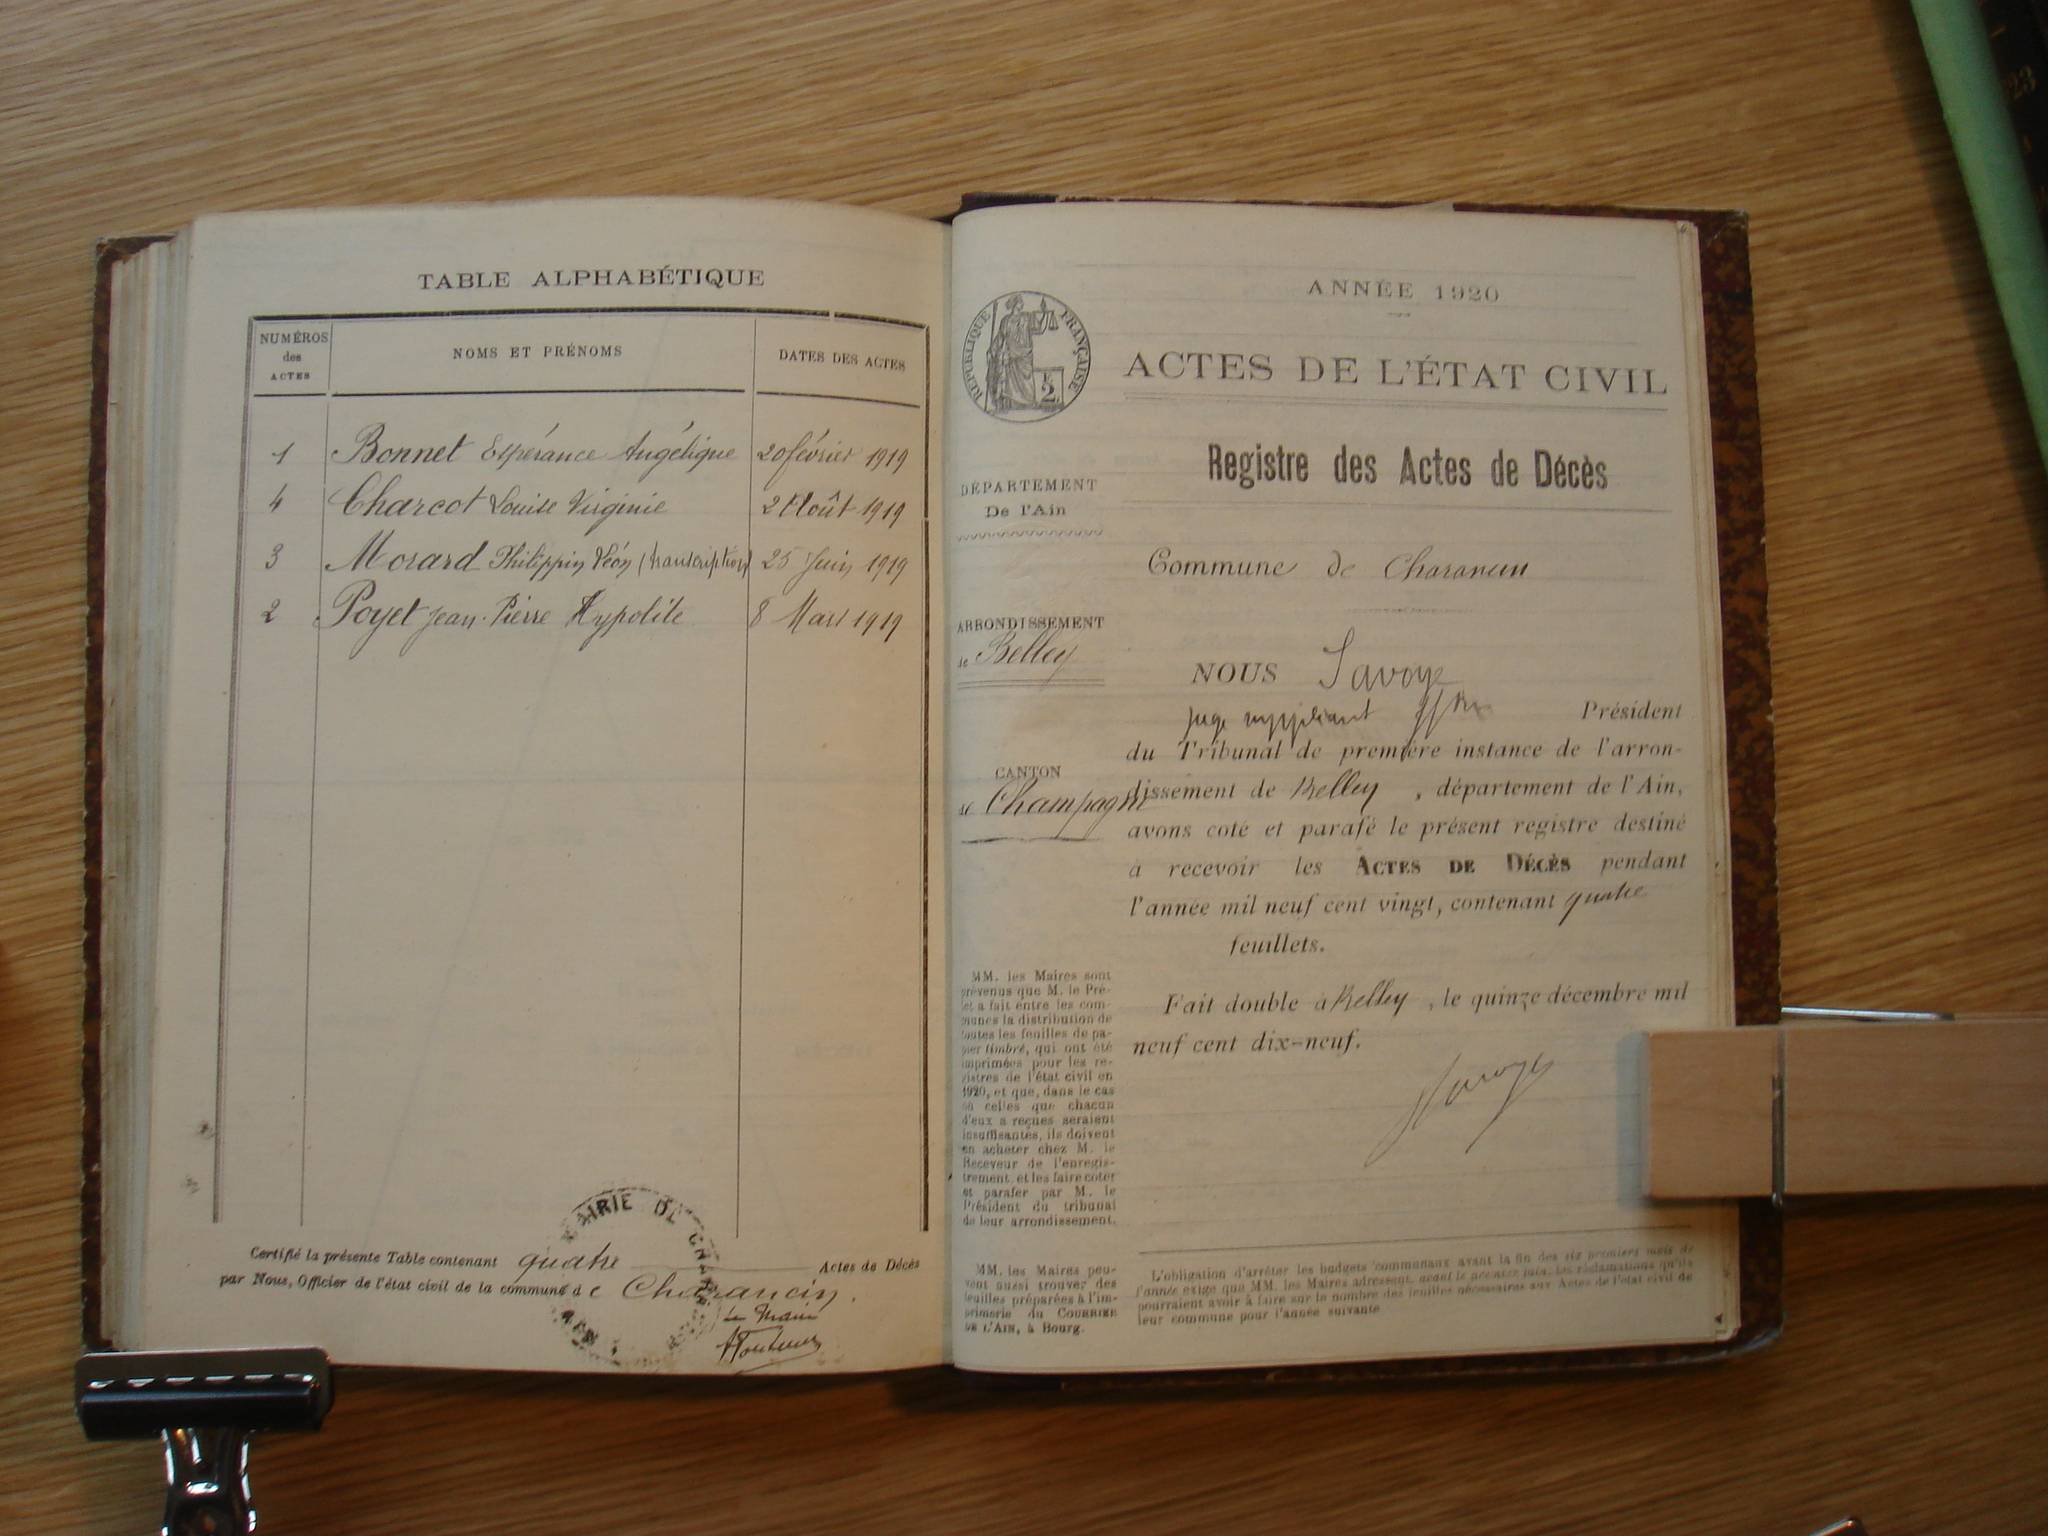 TABLE ALPHABÉTIQUE
NUMÉROS des ACTES
NOMS ET PRÉNOMS
DATES DES ACTES
1 Bonnet Espérance Angélique 20 février 1919
4 Charcot Louise Virginie 2 Août 1919
3 Morard Philippin Léon (transcription) 25 Juin 1919
2 Poyet Jean-Pierre Hypolite 8 Mars 1919
Certifié la présente Table contenant quatre Actes de Décès
par Nous, Officier de l'état civil de la commune de Charancin.
Le Maire
MAIRIE DE
AIN
ANNÉE 1920
RÉPUBLIQUE FRANÇAISE
2
ACTES DE L'ÉTAT CIVIL
Registre des Actes de Décès
DÉPARTEMENT
De l'Ain
Commune de Charancin
ARRONDISSEMENT
de Belley
CANTON
de Champagne
NOUS Savoye
juge suppléant Président
du Tribunal de première instance de l'arron-
dissement de Belley, département de l'Ain,
avons coté et parafé le présent registre destiné
à recevoir les ACTES DE DÉCÈS pendant
l'année mil neuf cent vingt, contenant quatre
feuillets.
Fait double à Belley, le quinze décembre mil
neuf cent dix-neuf.
Savoye
MM. les Maires sont
prévenus que M. le Pré-
fet a fait entre les com-
munes la distribution de
toutes les feuilles de pa-
pier timbré, qui ont été
imprimées pour les re-
gistres de l'état civil en
1920, et que, dans le cas
où celles que chacun
d'eux a reçues seraient
insuffisantes, ils doivent
en acheter chez M. le
Receveur de l'enregis-
trement, et les faire coter
et parafer par M. le
Président du tribunal
de leur arrondissement.
MM. les Maires peu-
vent aussi trouver des
feuilles préparées à l'im-
primerie du COURRIER
DE L'AIN, à Bourg.
L'obligation d'arrêter les budgets communaux avant la fin des six premiers mois de
l'année exige que MM. les Maires adressent, avant le premier juin, les réclamations qu'ils
pourraient avoir à faire sur le nombre des feuilles nécessaires aux Actes de l'état civil de
leur commune pour l'année suivante